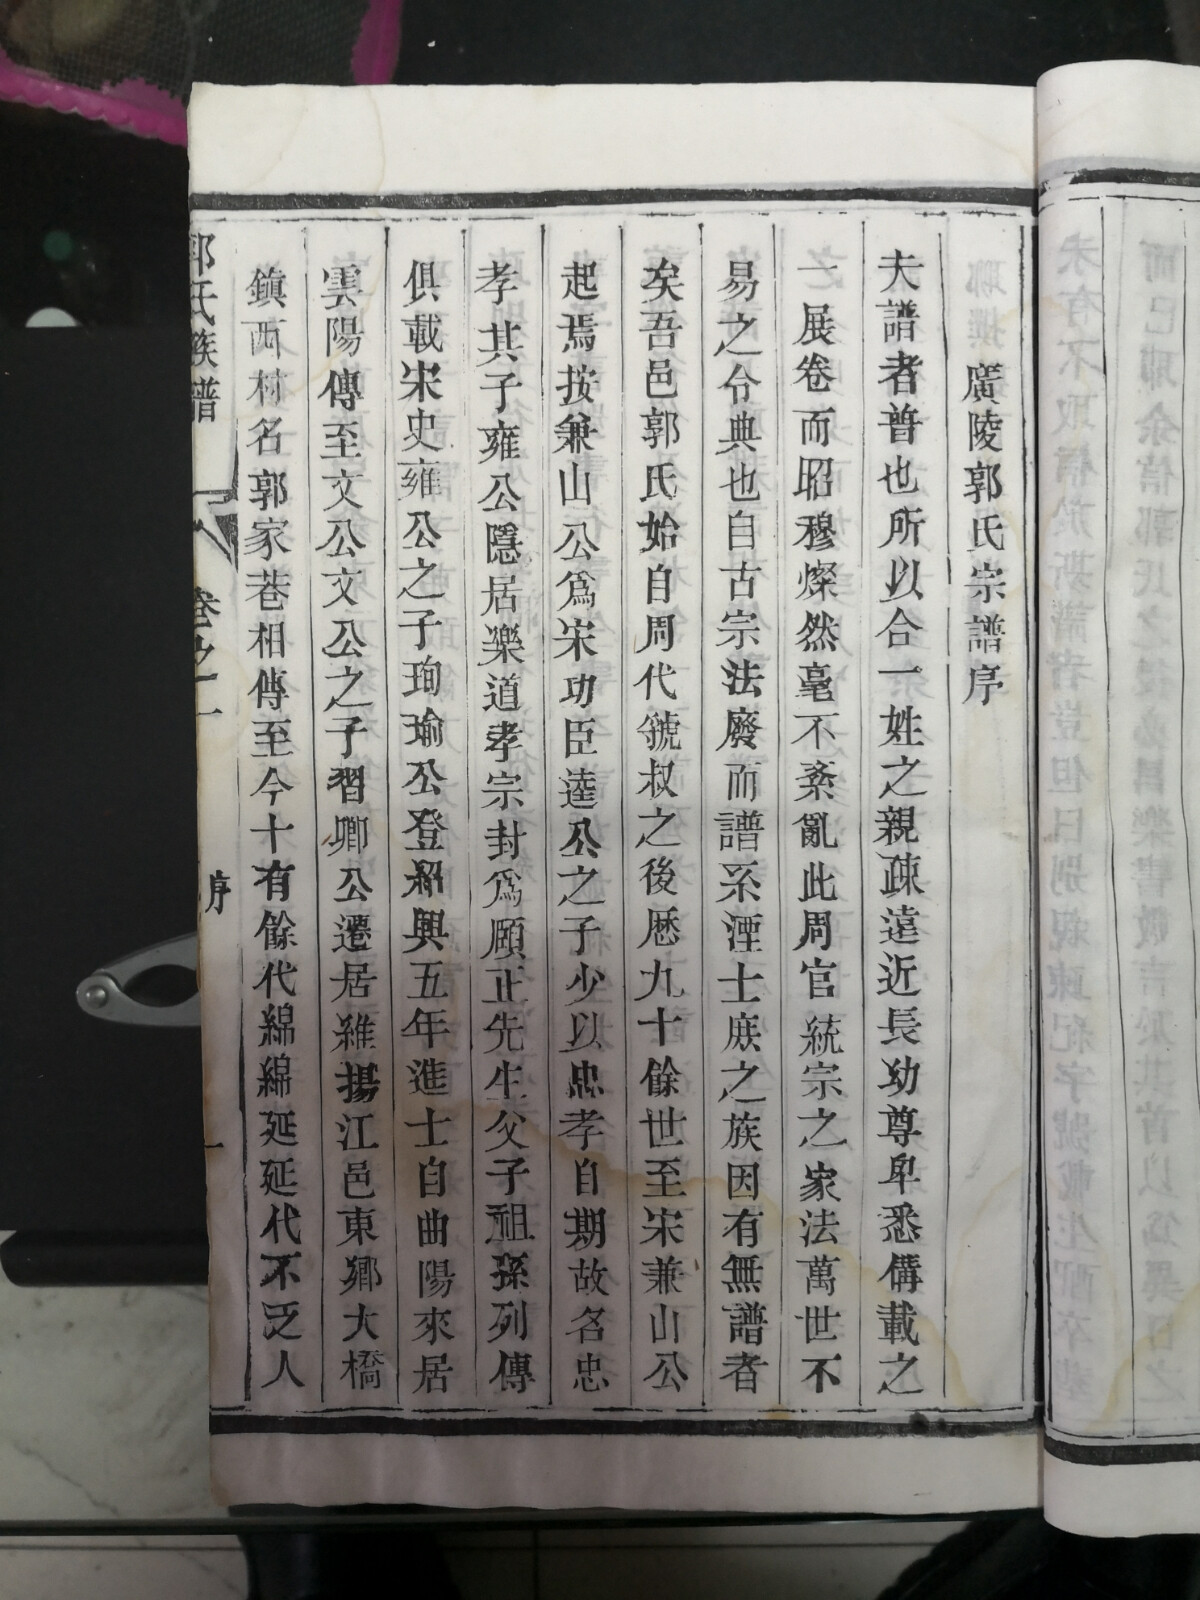 廣陵郭氏宗譜序
夫譜者普也所以合一姓之親疎遠近長幼尊卑悉備載之
一展卷而昭穆燦然毫不紊亂此周官統宗之家法萬世不
易之令典也自古宗法廢而譜系湮士庶之族因有無譜者
矣吾邑郭氏始自周代虢叔之後歷九十餘世至宋兼山公
起焉按兼山公爲宋功臣逵公之子少以忠孝自期故名忠
孝其子雍公隱居樂道孝宗封爲頤正先生父子祖孫列傳
俱載宋史雍公之子珣瑜公登紹興五年進士自曲陽來居
雲陽傳至文公文公之子習卿公遷居維揚江邑東鄉大橋
鎮西村名郭家巷相傳至今十有餘代綿綿延延代不乏人
郭氏族譜
卷之一
序
一